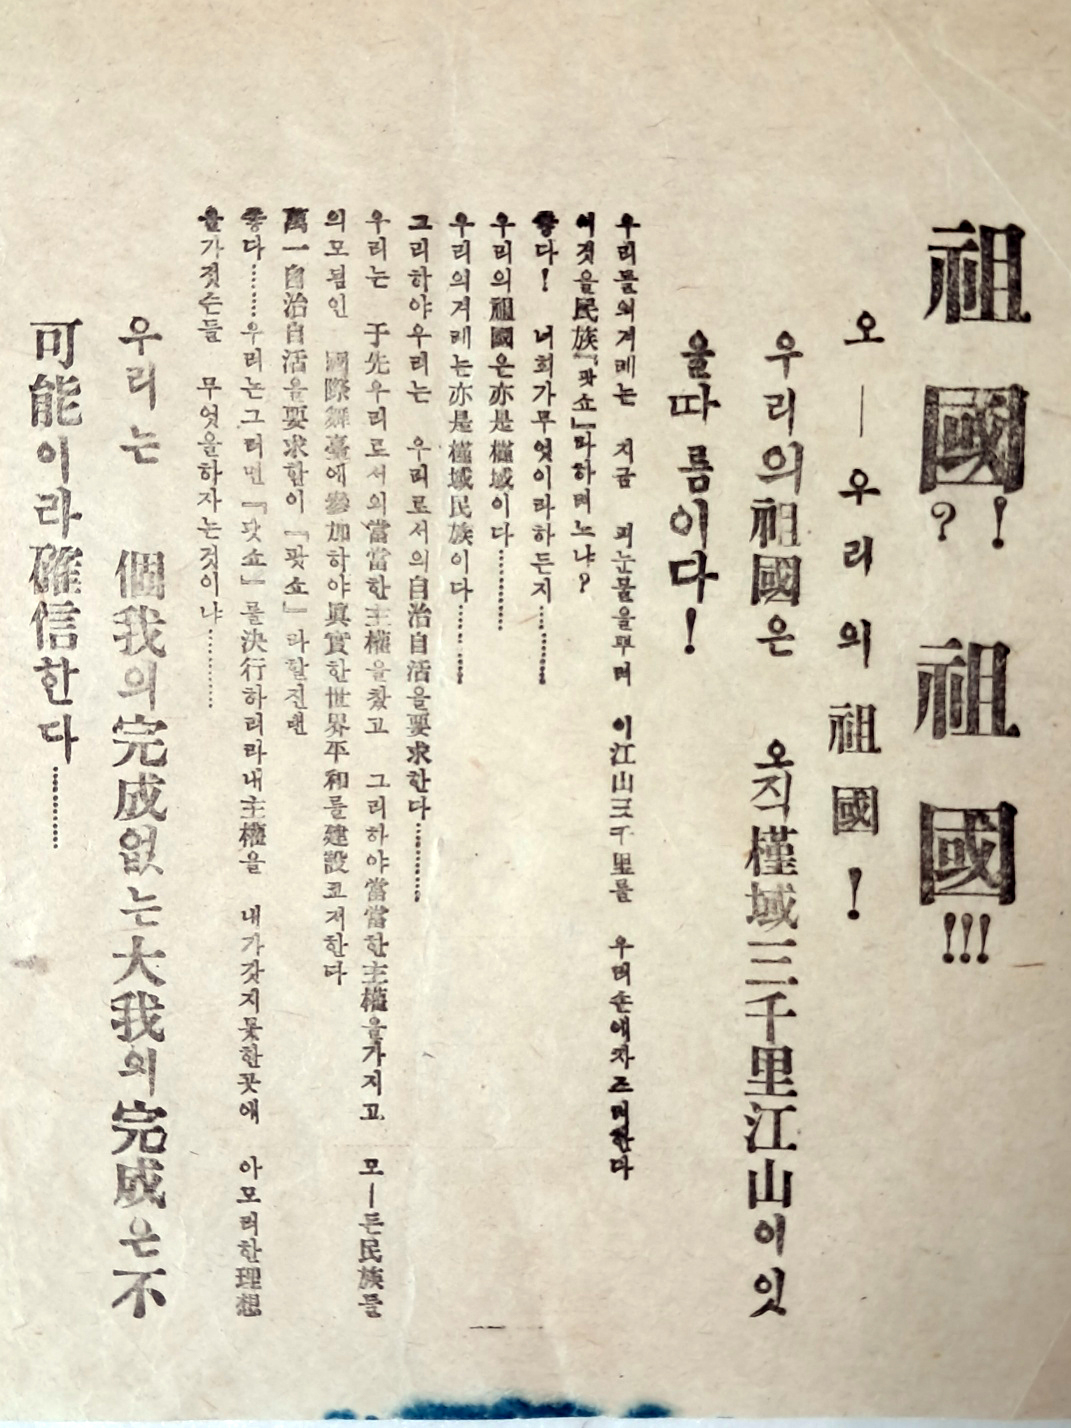 祖國?! 祖國!!!
오─우리의祖國!
우리의祖國은 오직槿域三千里江山이잇
을따름이다!
우리들의겨레는 지금 피눈물을뿌려 이江山三千里를 우리손에차즈려한다
이것을民族『팟쇼』라하려느냐?
좋다! 너희가무엇이라하든지………
우리의祖國은亦是槿域이다………
우리의겨레는亦是槿域民族이다………
그리하야우리는 우리로서의自治自活을要求한다………
우리는 于先우리로서의當當한主權을찾고 그리하야當當한主權을가지고 모─든民族들
의모됨인 國際舞臺에參加하야眞實한世界平和를建設코저한다
萬一自治自活을要求함이『팟쇼』라할진댄
좋다………우리는그러면『팟쇼』를決行하리라내主權을 내가갖지못한곳에 아모러한理想
을가젓슨들 무엇을하자는것이냐………
우리는 個我의完成없는大我의完成은不
可能이라確信한다………